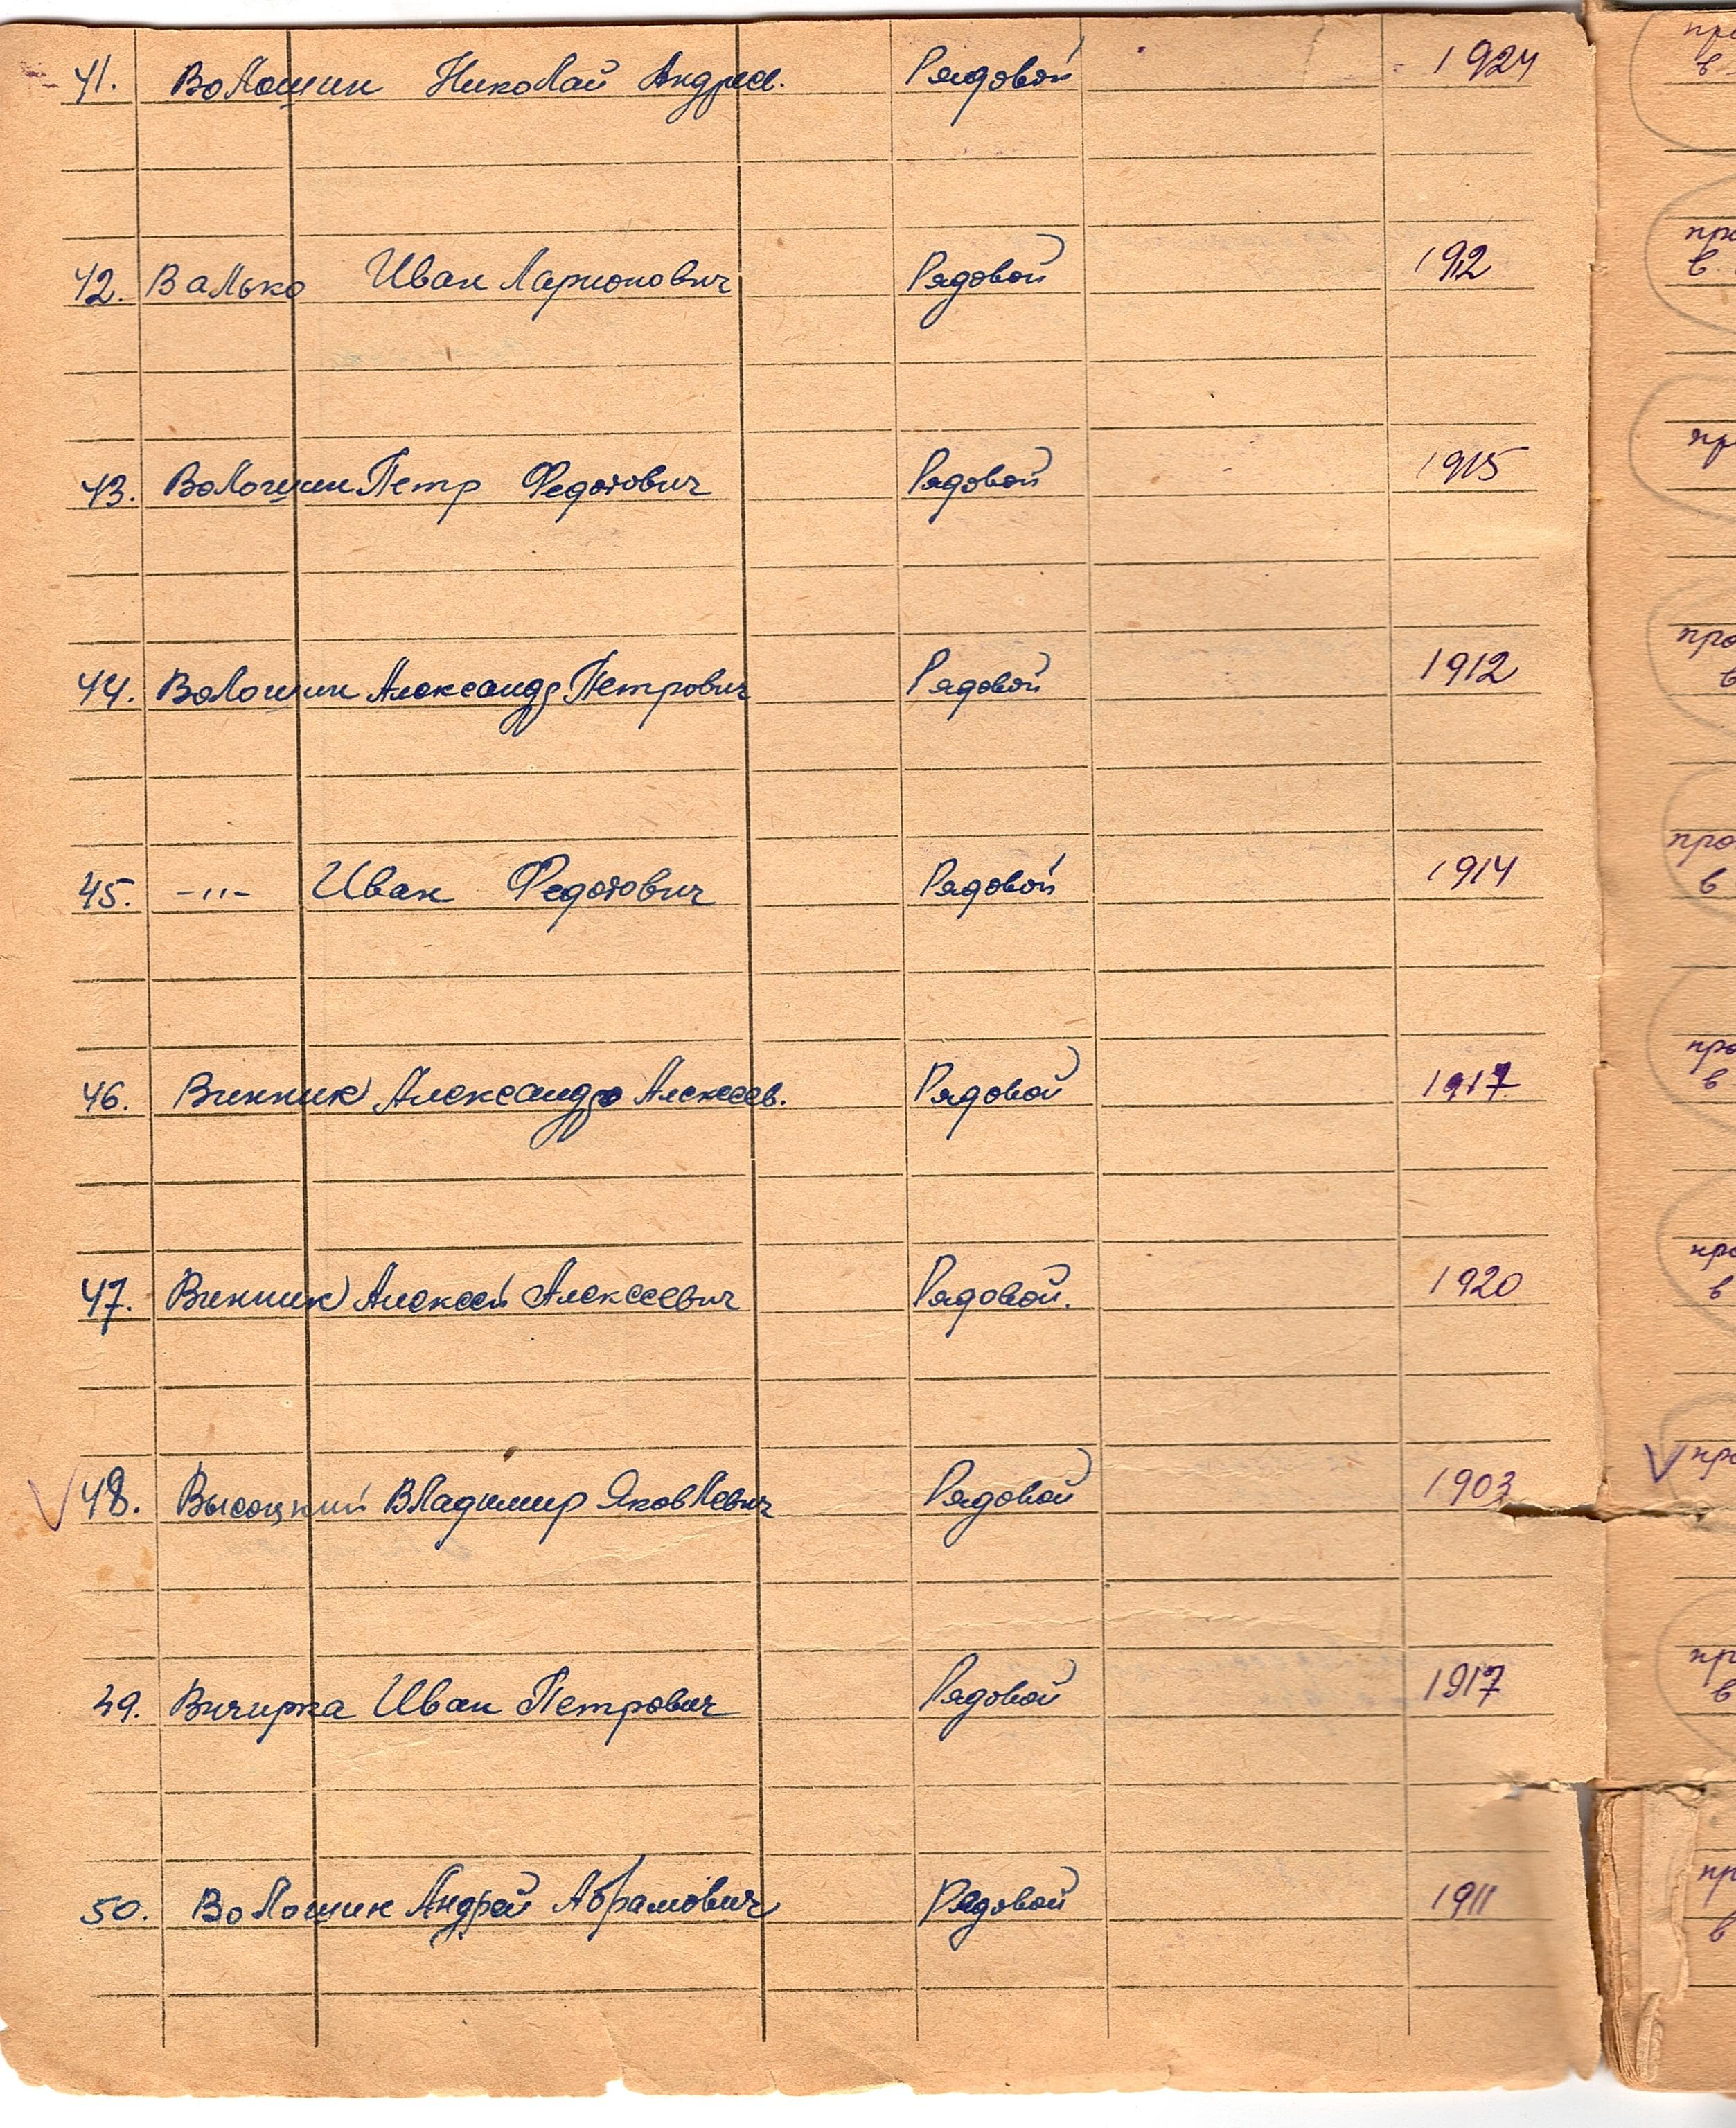 41. Волошин Николай Андреев. Рядовой 1924
42. Валько Иван Ларионович Рядовой 1912
43. Волошин Петр Федотович Рядовой 1915
44. Волошин Александр Петрович Рядовой 1912
45. -"- Иван Федотович Рядовой 1914
46. Винник Александр Алексеев. Рядовой 1917
47. Винник Алексей Алексеевич Рядовой. 1920
48. Высоцкий Владимир Яковлевич Рядовой 1903
49. Вичирка Иван Петрович Рядовой 1917
50. Волошин Андрей Абрамович Рядовой 1911